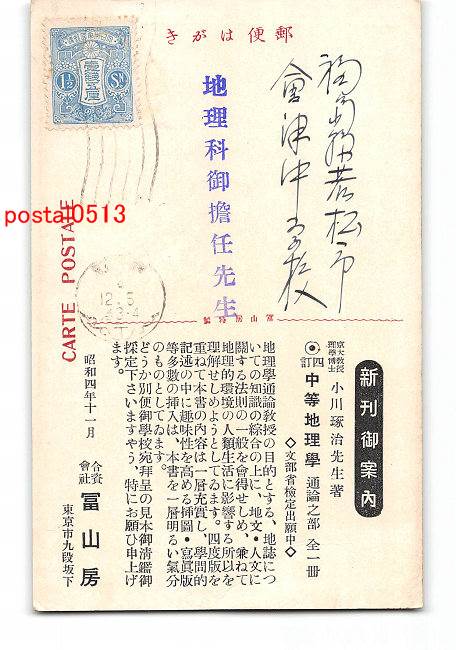 郵便はがき
壹錢五厘
1½ Sn
CARTE POSTALE
postal0513
福島縣若松市
會津中學校
地理科御擔任先生
12.5
冨山房發
新刊御案內
京大教授
理學博士
小川琢治先生著
四訂
中等地理學 通論之部 全一冊
◇文部省檢定出願中◇
地理學通論教授の目的とする、地誌につ
いての知識の綜合の上に、地文・人文に
關する法則の一般を會得せしめ、兼ねて
地理的環境の人類生活に影響する所以を
理解せしめようとしてゐます。四度版を
重ねて本書の內容は一層充實し、學問的
記述の中に趣味性を高める挿圖・寫眞版
等多數の挿入は、本書を一層明るい氣分
のものとしてゐます。
どうか別便御學校宛拜呈の見本御淸鑑御
採定下さいますやう、特にお願ひ申上げ
ます。
昭和四年十一月
合資
會社
冨山房
東京市九段坂下